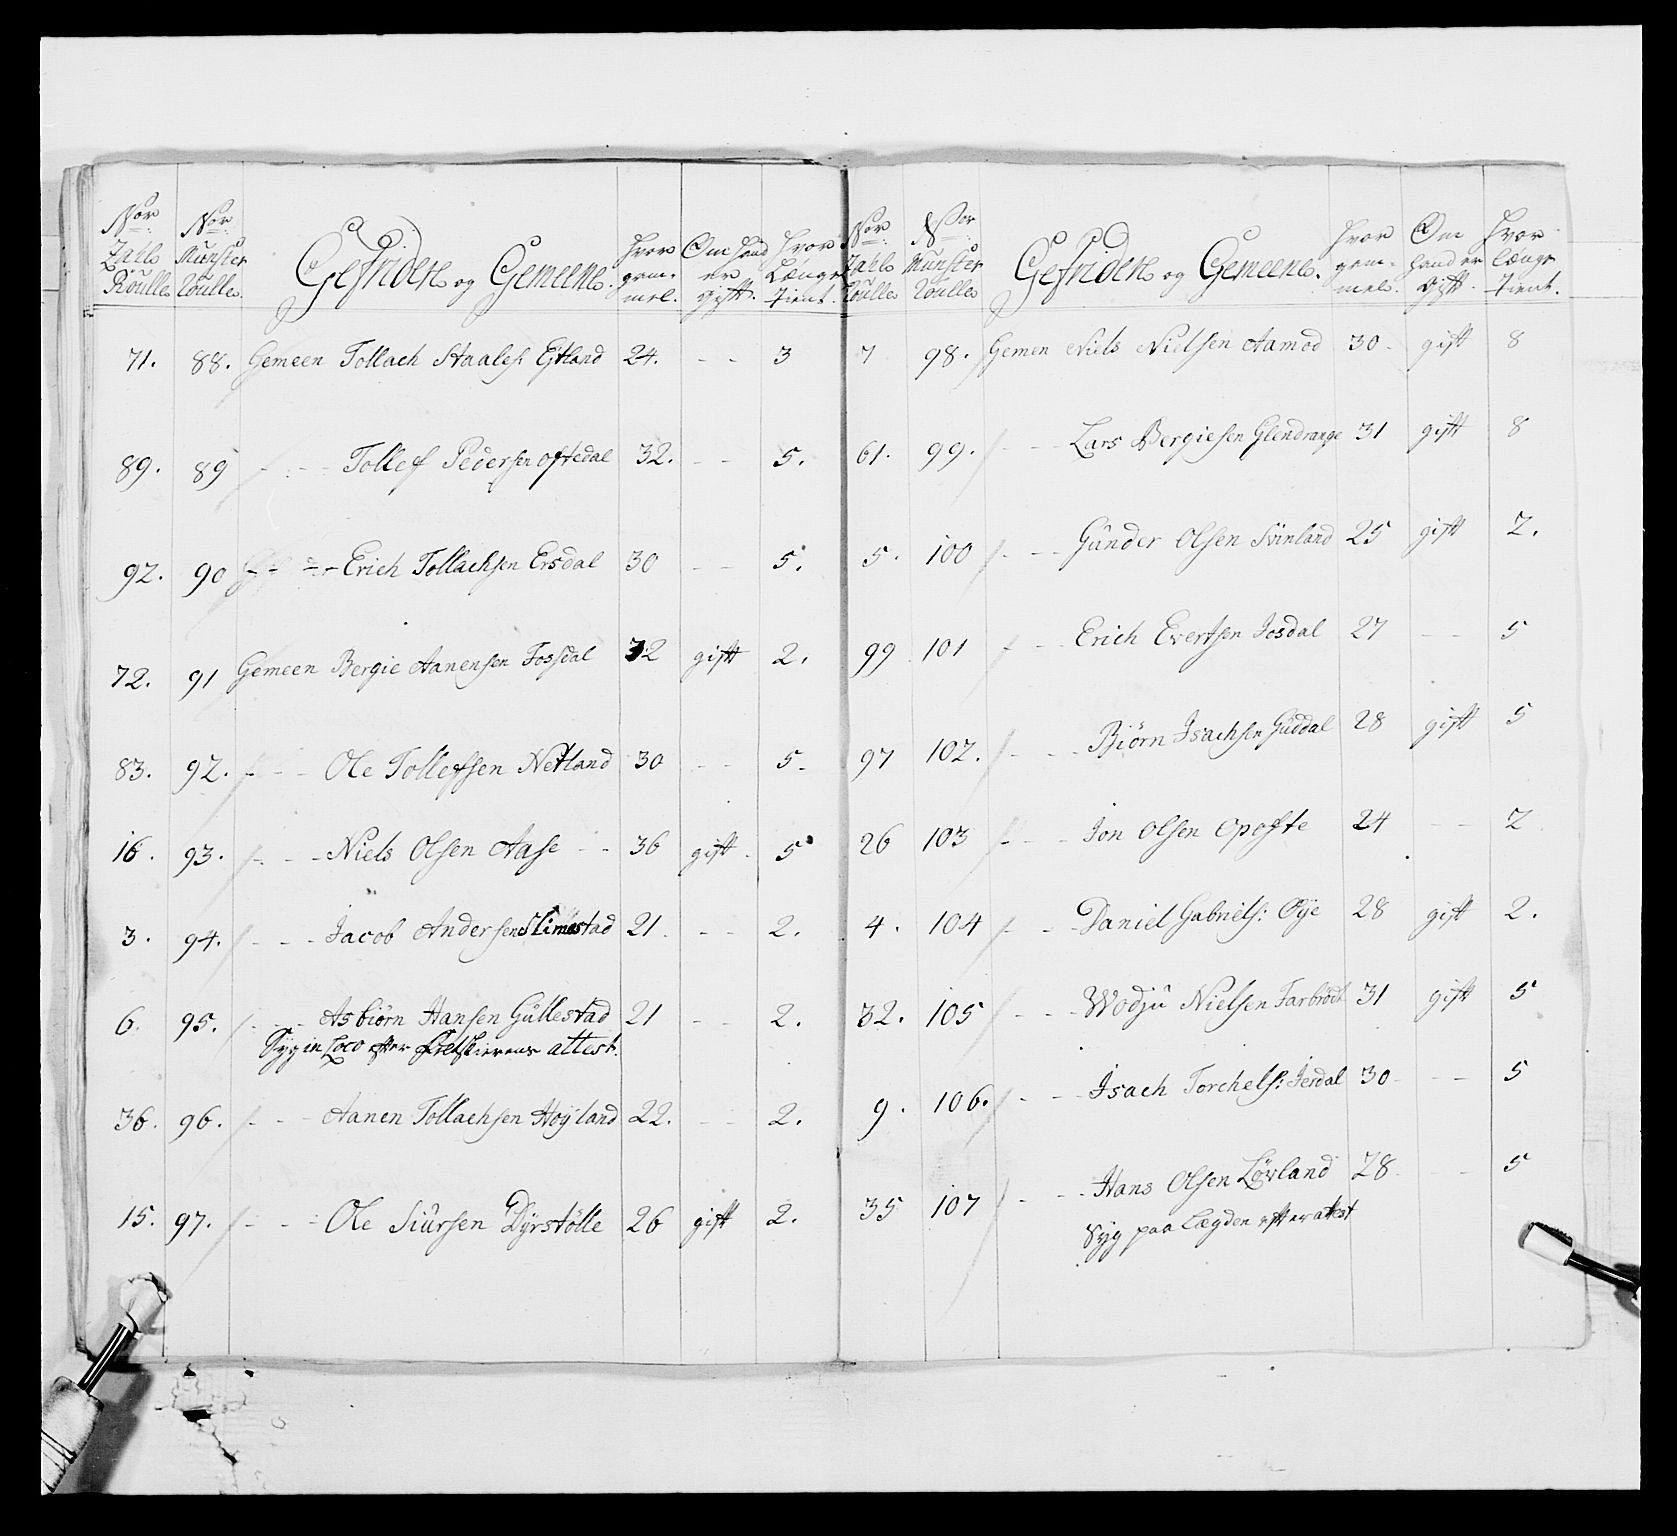 Nor Zahl Roulle | Nor Munster Roulle | Gefriden og Gemeene. | hvor gam- mel. | Om hand er gift. | hvor Længe Tient.
71. 88. Gemeen Tollach Staales: Eftland 24. - - 3
89. 89 - - - Tollef Pedersen oftedal 32. - - 5.
92. 90 - - - Erich Tollachsen Ersdal 30 - - 5.
72. 91 Gemeen Bergie Aanensen Fossdal 32 gift 2.
83. 92. - - - Ole Tollefsen Netland 30 - - 5.
16. 93. - - - Niels Olsen Aase - - 36 gift 5
3. 94. - - - Jacob Andersen Slimestad 21 - - 2.
6. 95. - - - Asbiörn Hansen Gullestad 21 - - 2.
Syg in Loco efter attest.
36. 96. - - - Aanen Tollachsen Hoyland 22. - - 2.
15. 97. - - - Ole Siursen Dyrstölle 26 gift 2.
Nor Zahl Roulle | Nor Munster Roulle | Gefriden og Gemeene. | hvor gam- mel. | Om hand er gift. | hvor længe Tient.
7 98. Gemen Niels Nielsen Aamod 30 - gift 8
61. 99. - - Lars Bergiesen Glendrange 31 gift 8
5. 100 - - - Gunder Olsen Svinland 25 gift 2.
99 101 - - - Erich Evertsen Josdal 27 - - 5
97 102. - - - Biörn Isachsen Guddal 28 gift 5
26 103 - - - Jon Olsen Opofte 24 - - 2
4. 104 - - - Daniel Gabriels: Oye 28 gift 2.
32. 105 - - - Wodju Nielsen Farbrodt 31 gift 5
9. 106. - - - Isach Torchels: Jerdal 30 - - 5
35 107 - - - Hans Olsen Lövland 28 - - 5
Syg paa Lægden efter attest